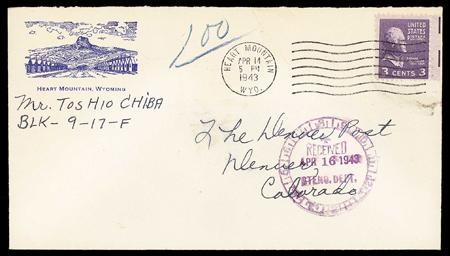 200
HEART MOUNTAIN
APR 14
5 PM
1943
WYO.
UNITED
STATES
POSTAGE
3 CENTS 3
HEART MOUNTAIN, WYOMING
Mr. TosHio CHIBA
BLK-9-17-F
The Denver Post
Denver
Colorado
RECEIVED
APR 16 1943
STENO. DEPT.